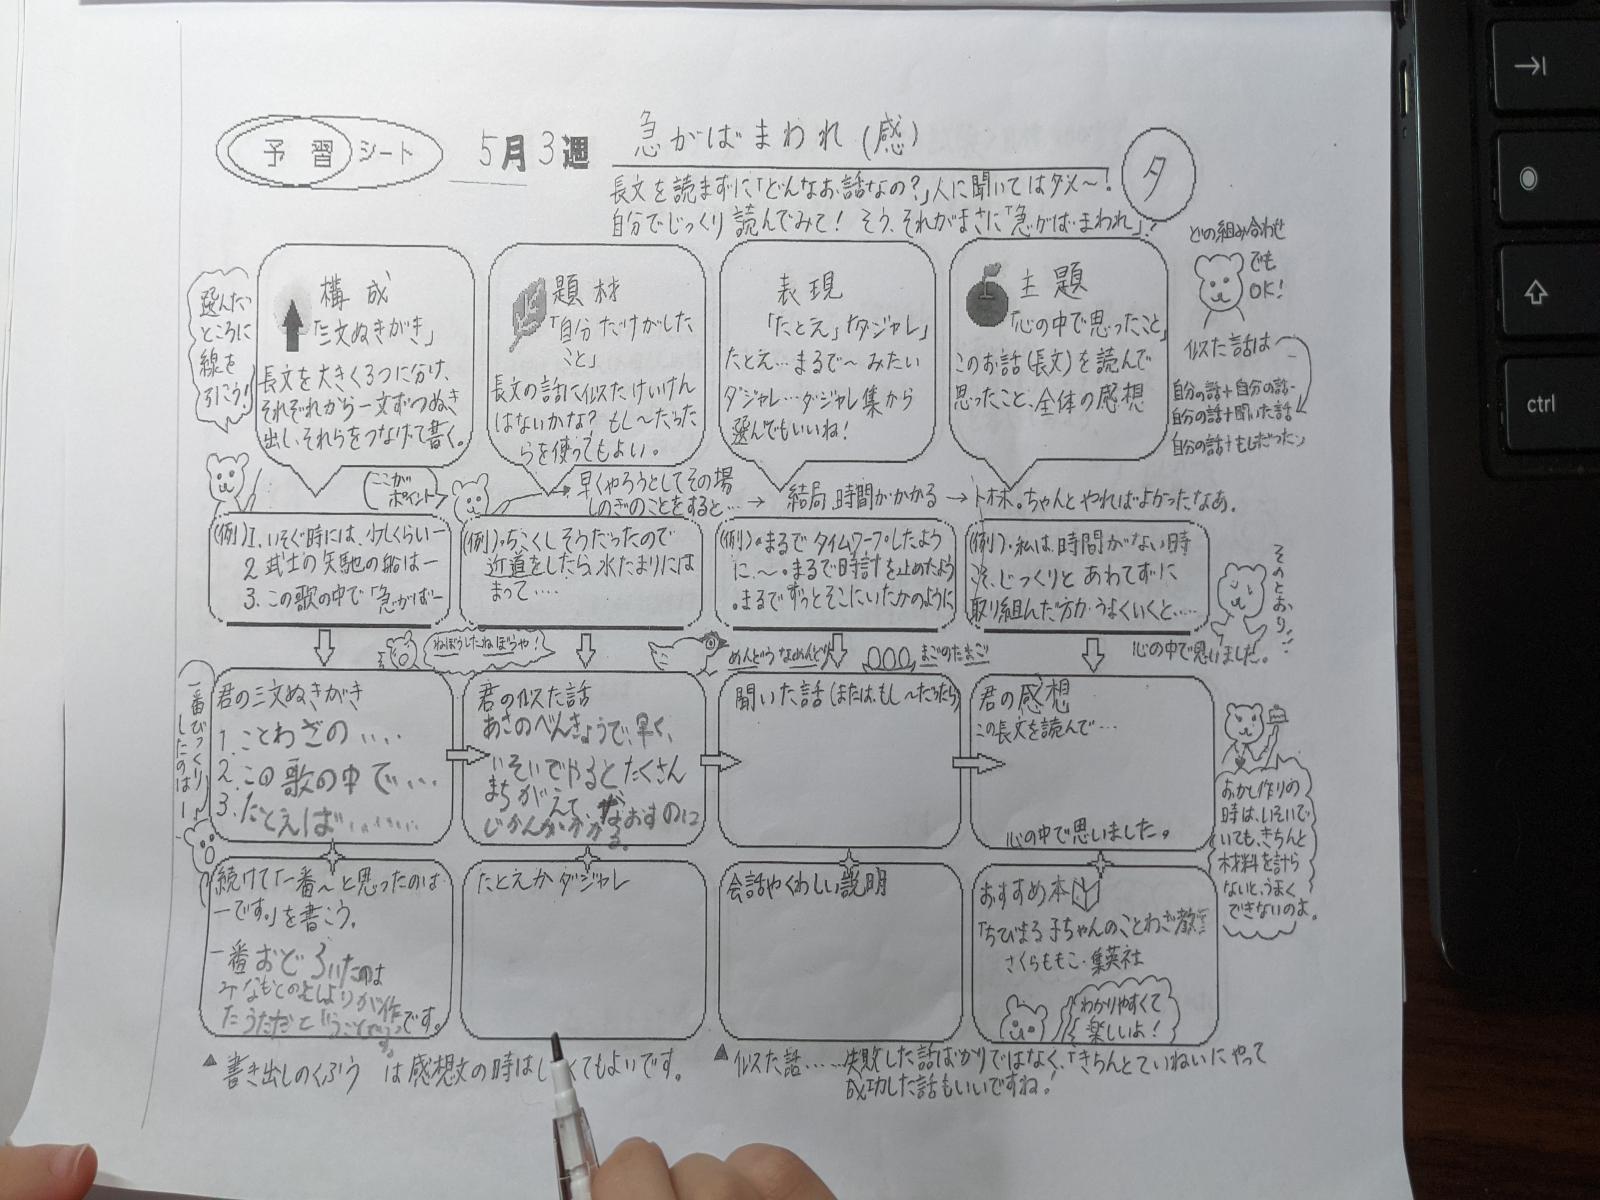 予習シート
5月3週
急がばまわれ(感)
夕
長文を読まずに「どんなお話なの?」人に聞いてはダメ～!
自分でじっくり読んでみて! そう、それがまさに「急がばまわれ」!
どの組み合わせ
でも
OK!
選んだ
ところに
線を
引こう!
構成
「三文ぬきがき」
長文を大きく3つに分け、
それぞれから一文ずつぬき
出し、それらをつなげて書く。
題材
「自分だけがした
こと」
長文の話に似たけいけん
はないかな? もし～だったら
を使ってもよい。
表現
「たとえ」「ダジャレ」
たとえ…まるで～みたい
ダジャレ…ダジャレ集から
選んでもいいね!
主題
「心の中で思ったこと」
このお話(長文)を読んで
思ったこと、全体の感想
似た話は
自分の話+自分の話
自分の話+聞いた話
自分の話+もしだったら
ここが
ポイント
早くやろうとしてその場
しのぎのことをすると…
→ 結局、時間がかかる → トホホ。ちゃんとやればよかったなあ。
(例)1. いそぐ時には、少しくらい―
2. 武士の矢馳の船は―
3. この歌の中で「急がば―
(例)。ちこくしそうだったので
近道をしたら、水たまりには
まって……
(例)。まるでタイムワープしたよう
に、～。まるで時計を止めたよう
。まるでずっとそこにいたかのように
(例)・私は、時間がない時
こそ、じっくりとあわてずに
取り組んだ方がうまくいくと……
心の中で思いました。
そのとおり!!
ねぼうしたねぼうや!
めんどうなめんどり
まごのたまご
一番びっくり
したのは―
君の三文ぬきがき
1. ことわざの....
2. この歌の中で...
3. たとえば......
君の似た話
あさのべんきょうで、早く、
いそいでやるとたくさん
まちがえてなおすのに
じかんがかかる。
聞いた話(または、もし～だったら)
君の感想
この長文を読んで…
心の中で思いました。
おかし作りの
時は、いそいで
いても、きちんと
材料を計ら
ないと、うまく
できないのよ。
続けて「一番～と思ったのは
―です。」を書こう。
一番おどろいたのは
みなもとのとしよりが作
たうただということです。
たとえかダジャレ
会話やくわしい説明
おすすめ本
「ちびまる子ちゃんのことわざ教室」
さくらももこ・集英社
わかりやすくて
楽しいよ!
▲書き出しのくふう は感想文の時はしなくてもよいです。
▲似た話……失敗した話ばかりではなく、「きちんとていねいにやって
成功した話もいいですね!